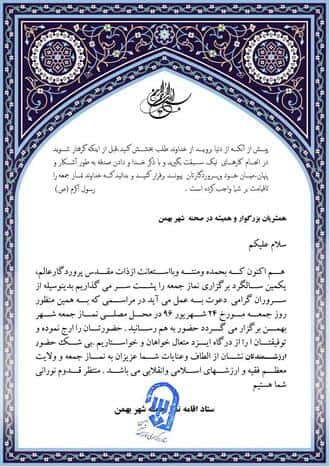 پیش از آنکه از دنیا بروید از خداوند طلب بخشش کنید،قبل از اینکه گرفتار شوید
در انجام کارهای نیک سبقت بگیرید و با ذکر خدا و دادن صدقه به طور آشکار و
پنهان،میان خود و پروردگارتان پیوند برقرار کنید و بدانید که خداوند نماز جمعه را
تا قیامت بر شما واجب کرده است .
رسول اکرم (ص)
همشهریان بزرگوار و همیشه در صحنه شهر بهمن
سلام علیکم
هم اکنون که بحمده ومنته وبااستعانت ازذات مقدس پروردگارعالم،
یکمین سالگرد برگزاری نماز جمعه را پشت سر می گذاریم بدینوسیله از
سروران گرامی دعوت به عمل می آید در مراسمی که به همین منظور
روز جمعه مورخ ۲۴ شهریور ۹۶ در محل مصلی نماز جمعه شهر
بهمن برگزار می گردد حضور به هم رسانید . حضورتان را ارج نموده و
توفیقتان را از درگاه ایزد متعال خواهان و خواستاریم .بی شک حضور
ارزشمندتان نشان از الطاف وعنایات شما عزیزان به نماز جمعه و ولایت
معظم فقیه و ارزشهای اسلامی وانقلابی می باشد . منتظر قدوم نورانی
شما هستیم
ستاد اقامه نماز جمعه شهر بهمن